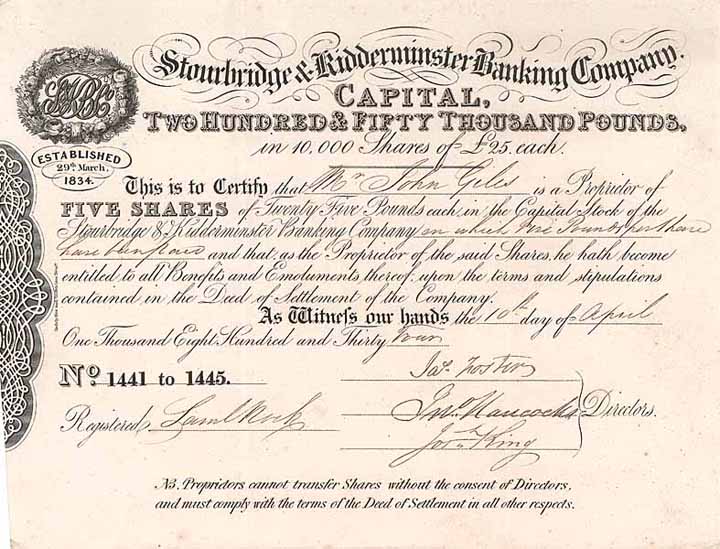 Stourbridge & Kidderminster Banking Company.
CAPITAL,
TWO HUNDRED & FIFTY THOUSAND POUNDS,
in 10,000 Shares of £25 each.
ESTABLISHED
29th March,
1834.
This is to Certify that Mr John Giles is a Proprietor of
FIVE SHARES of Twenty Five Pounds each, in the Capital Stock of the
Stourbridge & Kidderminster Banking Company on which five Pounds per share
have been paid and that, as the Proprietor of the said Shares, he hath become
entitled to all Benefits and Emoluments thereof, upon the terms and stipulations
contained in the Deed of Settlement of the Company.
As Witness our hands the 10th day of April
One Thousand Eight Hundred and Thirty Four
No. 1441 to 1445.
Jas. Foster
Jno. Hancocks Directors.
Registered, Saml
Jos. King
NB. Proprietors cannot transfer Shares without the consent of Directors,
and must comply with the terms of the Deed of Settlement in all other respects.